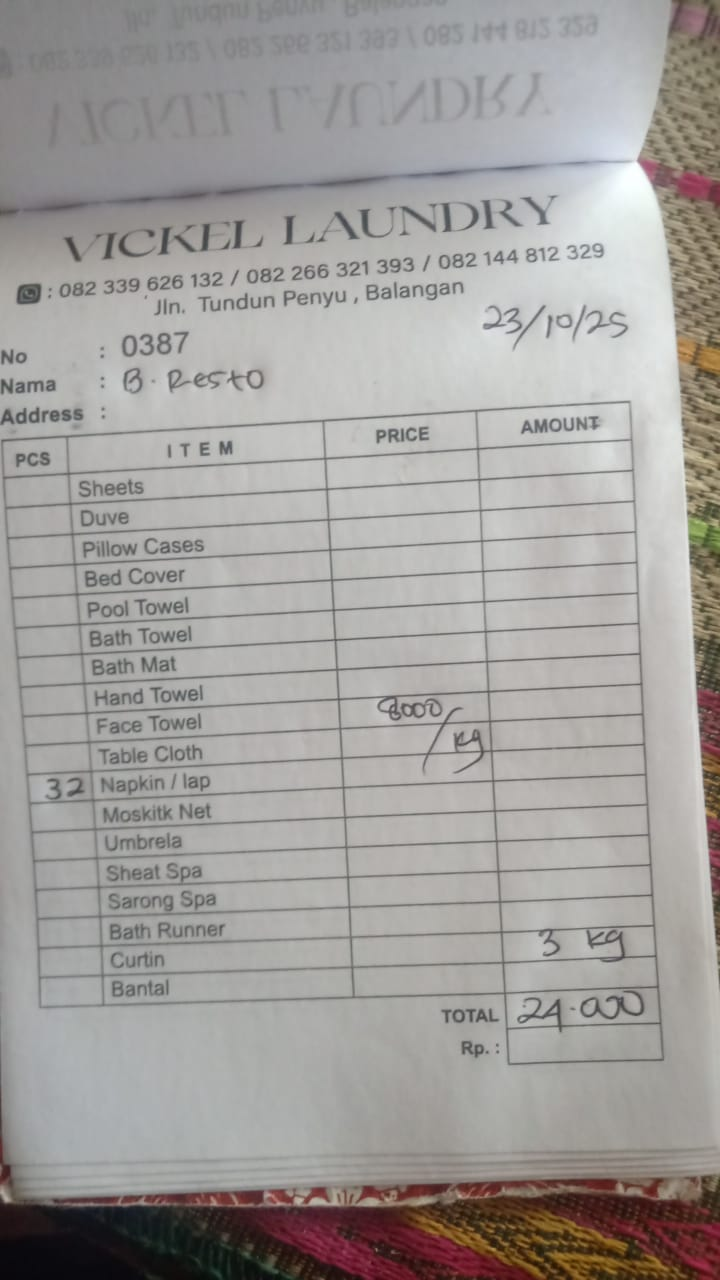 VICKEL LAUNDRY
: 082 339 626 132 / 082 266 321 393 / 082 144 812 329
Jln. Tundun Penyu , Balangan
23/10/25
No : 0387
Nama : B. Resto
Address :
PCS ITEM PRICE AMOUNT
Sheets
Duve
Pillow Cases
Bed Cover
Pool Towel
Bath Towel
Bath Mat
Hand Towel
Face Towel 8000/kg
Table Cloth
32 Napkin / lap
Moskitk Net
Umbrela
Sheat Spa
Sarong Spa
Bath Runner
Curtin 3 kg
Bantal
TOTAL 24.000
Rp. :